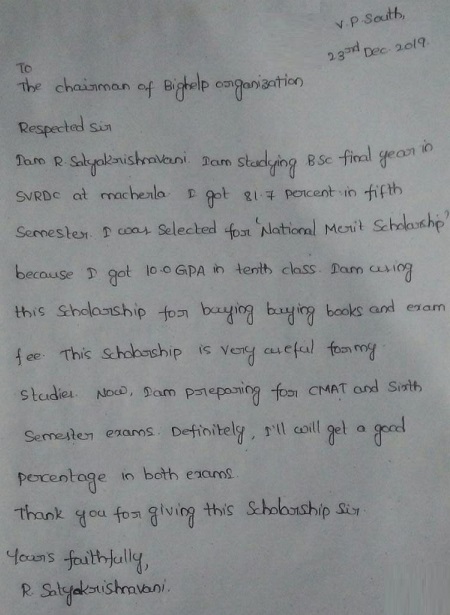 V.P. South,
23rd Dec. 2019.
To
The chairman of Bighelp organization
Respected sir
Iam R. Satyakrishnavani. Iam studying BSc final year in
SVRDC at macherla. I got 81.7 percent in fifth
Semester. I was selected for 'National Merit Scholarship'
because I got 10.0 GPA in tenth class. Iam using
this Scholarship for buying buying books and exam
fee. This Scholarship is very useful for my
studies. Now, Iam preparing for CMAT and Sixth
Semester exams. Definitely, I'll will get a good
percentage in both exams.
Thank you for giving this Scholarship Sir.
Yours faithfully,
R. Satyakrishnavani.